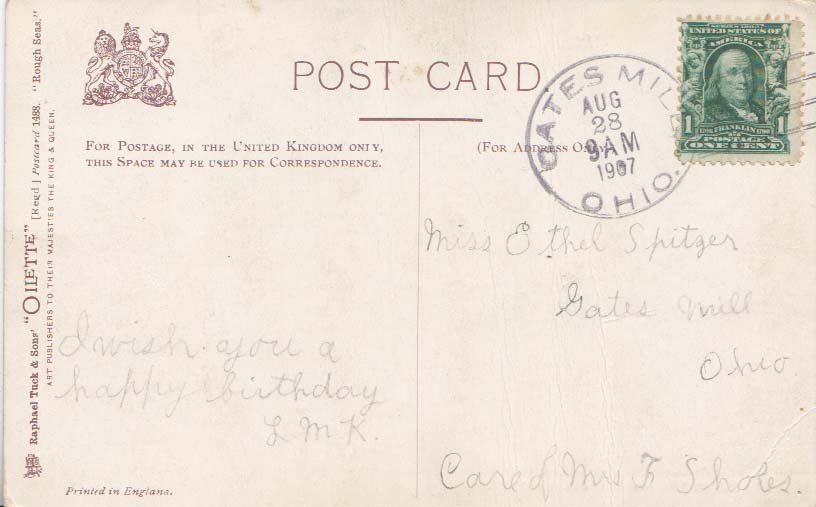 Raphael Tuck & Sons' "OILETTE" [Regd] Postcard 1488. "Rough Seas."
ART PUBLISHERS TO THEIR MAJESTIES THE KING & QUEEN.
POST CARD
FOR POSTAGE, IN THE UNITED KINGDOM ONLY,
THIS SPACE MAY BE USED FOR CORRESPONDENCE.
(FOR ADDRESS ONLY
GATES MILL
AUG
28
9 AM
1907
OHIO.
UNITED STATES OF
AMERICA
1 FRANKLIN 1
POSTAGE
ONE CENT
Miss Ethel Spitzer
Gates Mill
Ohio
Care of Mrs F Sholes.
I wish you a
happy birthday
L M K.
Printed in England.